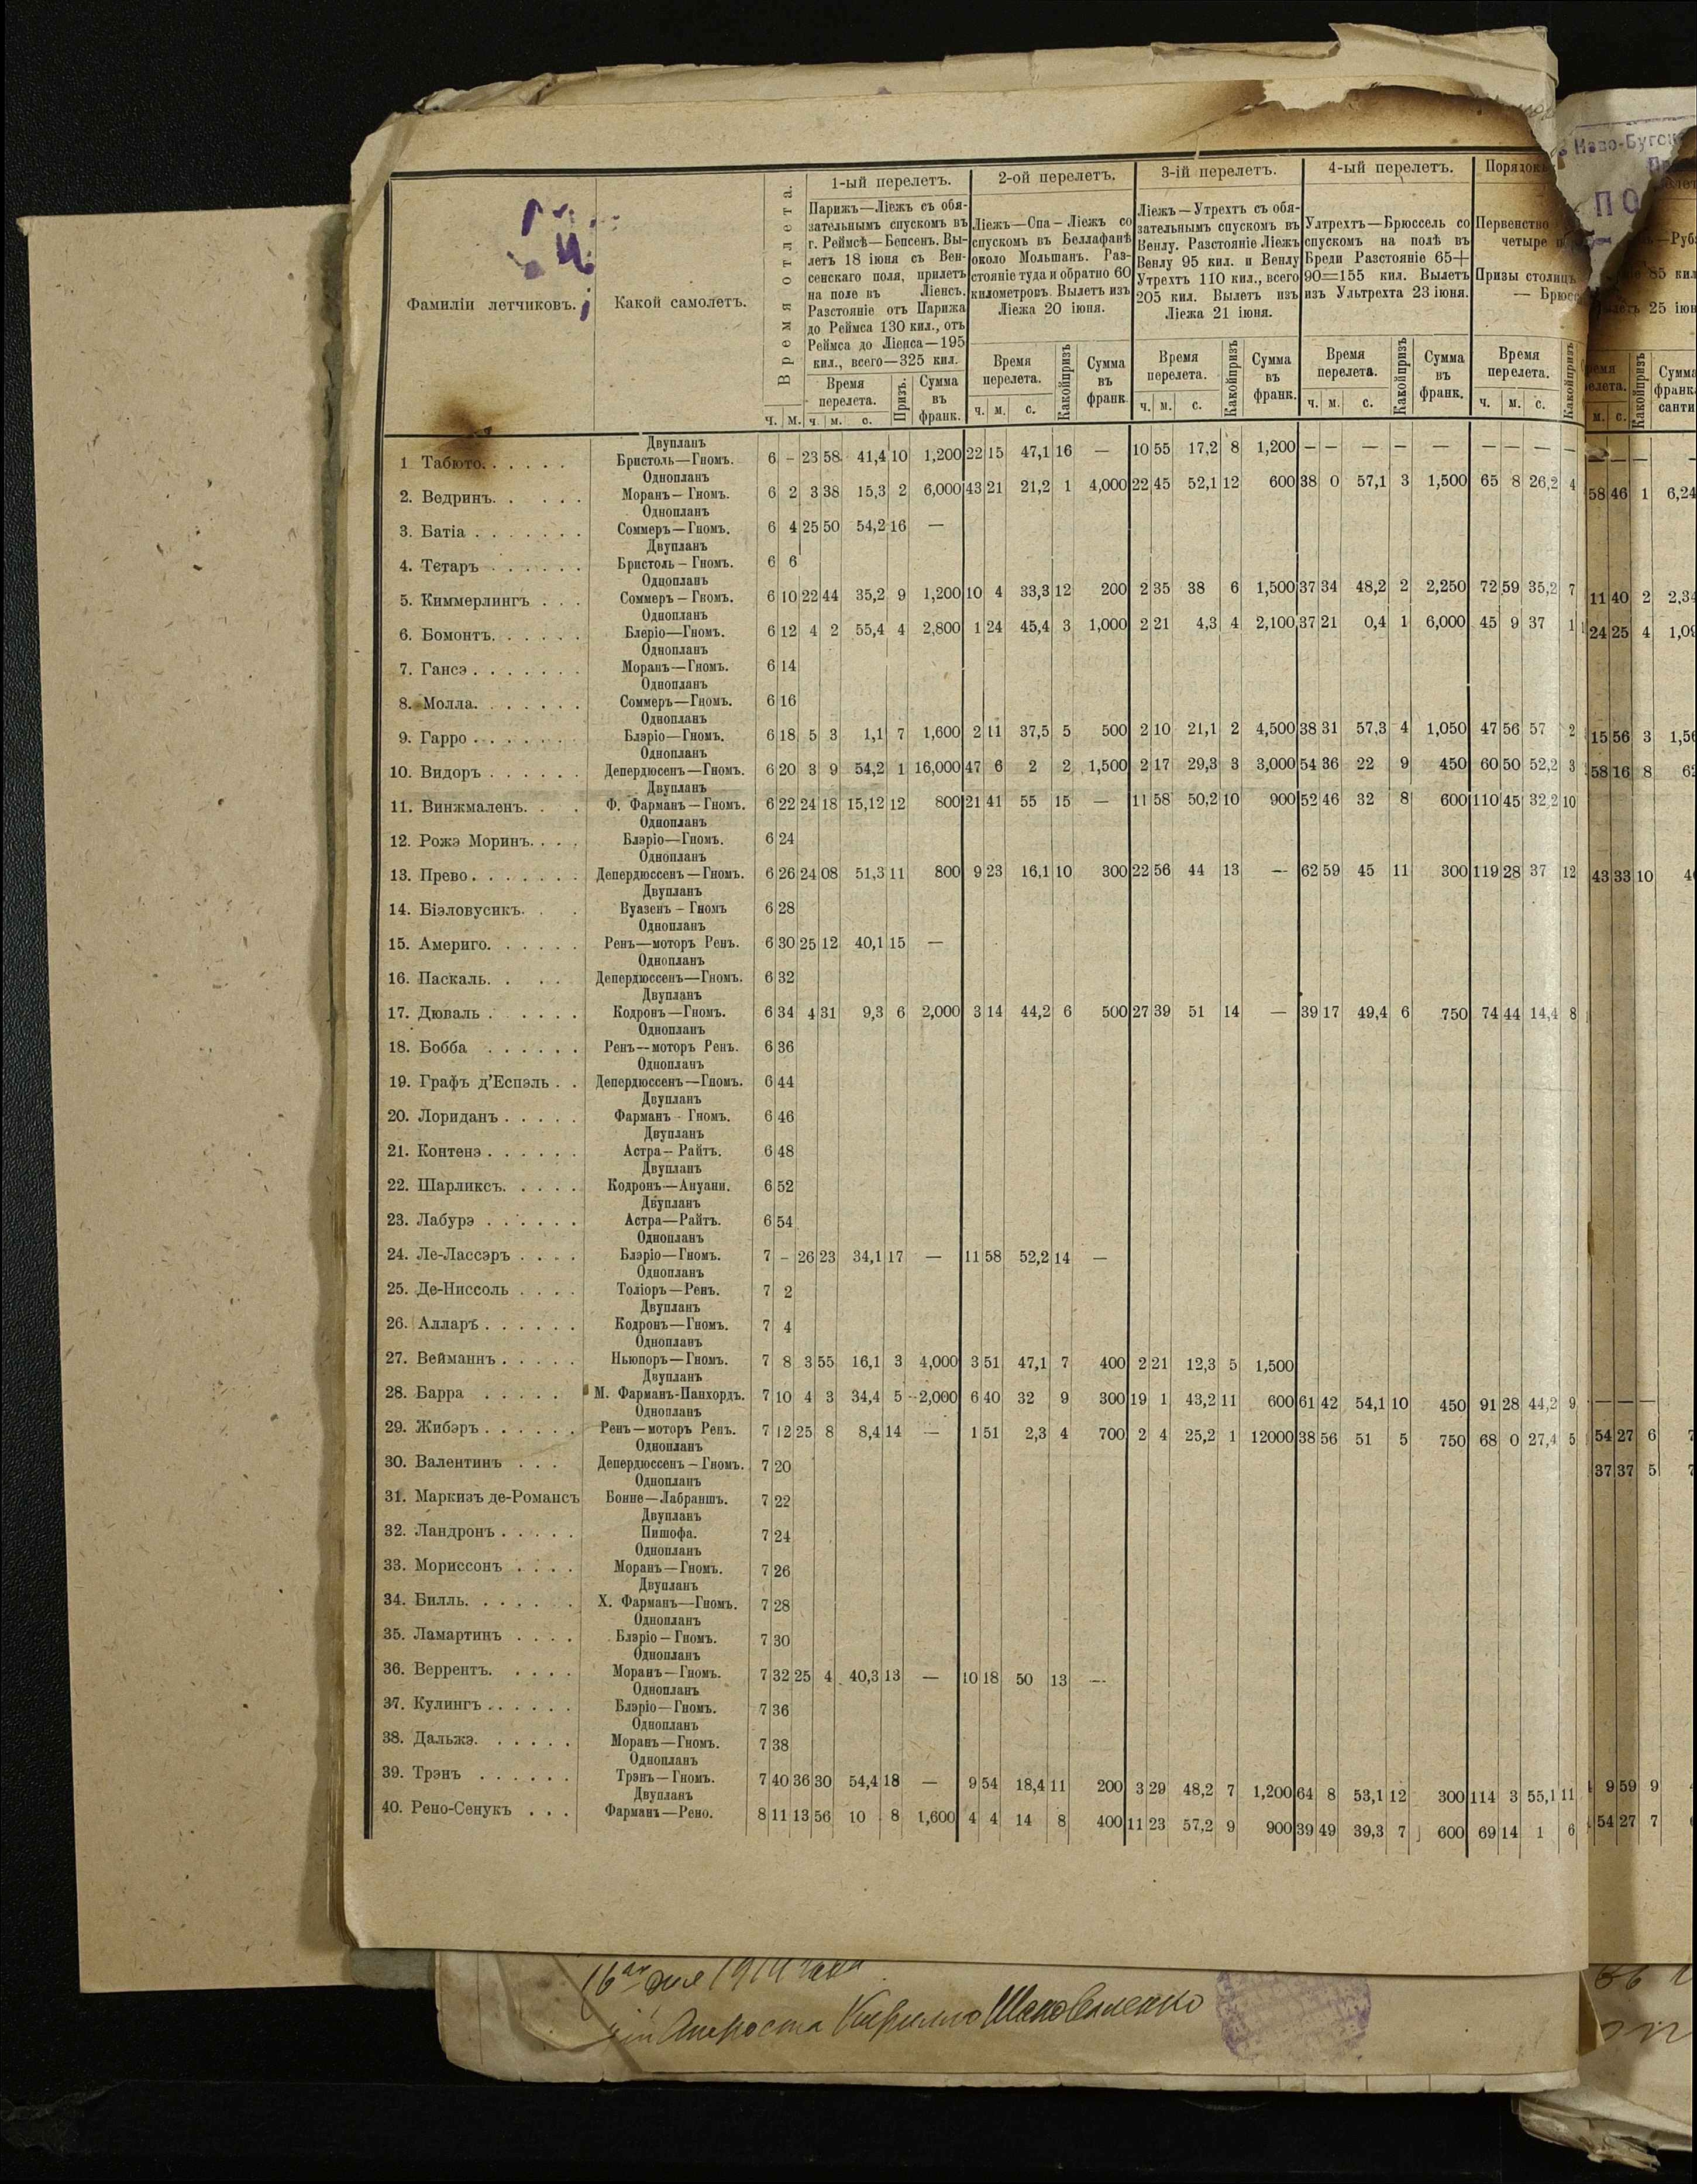 1-ый перелетъ. 2-ой перелетъ. 3-ій перелетъ. 4-ый перелетъ.
Фамиліи летчиковъ.
Какой самолетъ.
Время отлета.
ч. м.
Парижъ—Ліежъ съ обя-
зательнымъ спускомъ въ
г. Реймсѣ—Бепсенъ. Вы-
летъ 18 іюня съ Вен-
сенскаго поля, прилетъ
на поле въ Ліенсъ.
Разстояніе отъ Парижа
до Реймса 130 кил., отъ
Реймса до Ліенса—195
кил., всего—325 кил.
Время перелета. Призъ. Сумма въ франк.
ч. м. с.
Ліежъ—Спа—Ліежъ со
спускомъ въ Беллафанѣ
около Мольшанъ. Раз-
стояніе туда и обратно 60
километровъ. Вылетъ изъ
Ліежа 20 іюня.
Время перелета. Какой призъ Сумма въ франк.
ч. м. с.
Ліежъ—Утрехтъ съ обя-
зательнымъ спускомъ въ
Венлу. Разстояніе Ліежъ
Венлу 95 кил. и Венлу
Утрехтъ 110 кил., всего
205 кил. Вылетъ изъ
Ліежа 21 іюня.
Время перелета. Какой призъ Сумма въ франк.
ч. м. с.
Ултрехтъ—Брюссель со
спускомъ на полѣ въ
Бреди Разстояніе 65+
90=155 кил. Вылетъ
изъ Ультрехта 23 іюня.
Время перелета. Какой призъ Сумма въ франк.
ч. м. с.
Первенство
четыре
Призы столицъ
Время перелета. Какой призъ
ч. м. с.
85 кил
25 іюн
м. с. Какой призъ Сумма
1 Табюто. Двупланъ Бристоль—Гномъ. 6 – 23 58 41,4 10 1,200 22 15 47,1 16 — 10 55 17,2 8 1,200 — — — — — — — — —
2. Ведринъ. Однопланъ Моранъ—Гномъ. 6 2 3 38 15,3 2 6,000 43 21 21,2 1 4,000 22 45 52,1 12 600 38 0 57,1 3 1,500 65 8 26,2 4 58 46 1 6,24
3. Батіа Однопланъ Соммеръ—Гномъ. 6 4 25 50 54,2 16 —
4. Тетаръ Двупланъ Бристоль—Гномъ. 6 6
5. Киммерлингъ Однопланъ Соммеръ—Гномъ. 6 10 22 44 35,2 9 1,200 10 4 33,3 12 200 2 35 38 6 1,500 37 34 48,2 2 2,250 72 59 35,2 7 11 40 2 2,34
6. Бомонтъ. Однопланъ Блеріо—Гномъ. 6 12 4 2 55,4 4 2,800 1 24 45,4 3 1,000 2 21 4,3 4 2,100 37 21 0,4 1 6,000 45 9 37 1 24 25 4 1,09
7. Гансэ Однопланъ Моранъ—Гномъ. 6 14
8. Молла. Однопланъ Соммеръ—Гномъ. 6 16
9. Гарро Однопланъ Блэріо—Гномъ. 6 18 5 3 1,1 7 1,600 2 11 37,5 5 500 2 10 21,1 2 4,500 38 31 57,3 4 1,050 47 56 57 2 15 56 3 1,56
10. Видоръ Однопланъ Депердюсенъ—Гномъ. 6 20 3 9 54,2 1 16,000 47 6 2 2 1,500 2 17 29,3 3 3,000 54 36 22 9 450 60 50 52,2 3 58 16 8 62
11. Винжмаленъ. Двупланъ Ф. Фарманъ—Гномъ. 6 22 24 18 15,12 12 800 21 41 55 15 — 11 58 50,2 10 900 52 46 32 8 600 110 45 32,2 10
12. Рожэ Моринъ. Однопланъ Блэріо—Гномъ. 6 24
13. Прево Однопланъ Депердюссенъ—Гномъ. 6 26 24 08 51,3 11 800 9 23 16,1 10 300 22 56 44 13 — 62 59 45 11 300 119 28 37 12 43 33 10
14. Біэловусикъ. Двупланъ Вуазенъ—Гномъ 6 28
15. Америго. Однопланъ Ренъ—моторъ Ренъ. 6 30 25 12 40,1 15 —
16. Паскаль. Однопланъ Депердюссенъ—Гномъ. 6 32
17. Дюваль Двупланъ Кодронъ—Гномъ. 6 34 4 31 9,3 6 2,000 3 14 44,2 6 500 27 39 51 14 — 39 17 49,4 6 750 74 44 14,4 8
18. Бобба Однопланъ Ренъ—моторъ Ренъ. 6 36
19. Графъ д’Еспэль Однопланъ Депердюссенъ—Гномъ. 6 44
20. Лориданъ Двупланъ Фарманъ - Гномъ. 6 46
21. Контенэ Двупланъ Астра—Райтъ. 6 48
22. Шарликсъ. Двупланъ Кодронъ—Ануани. 6 52
23. Лабурэ Двупланъ Астра—Райтъ. 6 54
24. Ле-Лассэръ Однопланъ Блэріо—Гномъ. 7 – 26 23 34,1 17 — 11 58 52,2 14 —
25. Де-Ниссоль Однопланъ Толіоръ—Ренъ. 7 2
26. Алларъ Двупланъ Кодронъ—Гномъ. 7 4
27. Вейманнъ Однопланъ Ньюпоръ—Гномъ. 7 8 3 55 16,1 3 4,000 3 51 47,1 7 400 2 21 12,3 5 1,500
28. Барра Двупланъ М. Фарманъ-Панхордъ. 7 10 4 3 34,4 5 2,000 6 40 32 9 300 19 1 43,2 11 600 61 42 54,1 10 450 91 28 44,2 9 — — —
29. Жибэръ Однопланъ Ренъ—моторъ Ренъ. 7 12 25 8 8,4 14 — 1 51 2,3 4 700 2 4 25,2 1 12000 38 56 51 5 750 68 0 27,4 5 54 27 6
30. Валентинъ Однопланъ Депердюссенъ—Гномъ. 7 20 37 37 5
31. Маркизъ де-Романсъ Однопланъ Бонне—Лабраншъ. 7 22
32. Ландронъ Двупланъ Пишофа. 7 24
33. Мориссонъ Однопланъ Моранъ—Гномъ. 7 26
34. Билль. Двупланъ Х. Фарманъ—Гномъ. 7 28
35. Ламартинъ Однопланъ Блэріо—Гномъ. 7 30
36. Веррентъ. Однопланъ Моранъ—Гномъ. 7 32 25 4 40,3 13 — 10 18 50 13 —
37. Кулингъ Однопланъ Блэріо—Гномъ. 7 36
38. Дальжэ. Однопланъ Моранъ—Гномъ. 7 38
39. Трэнъ Однопланъ Трэнъ—Гномъ. 7 40 36 30 54,4 18 — 9 54 18,4 11 200 3 29 48,2 7 1,200 64 8 53,1 12 300 114 3 55,1 11 9 59 9
40. Рено-Сенукъ Двупланъ Фарманъ—Рено. 8 11 13 56 10 8 1,600 4 4 14 8 400 11 23 57,2 9 900 39 49 39,3 7 600 69 14 1 6 54 27 7